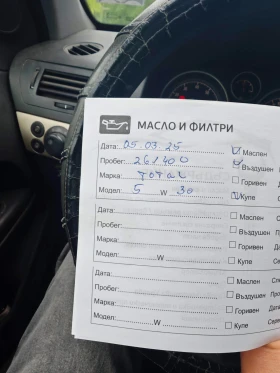 МАСЛО И ФИЛТРИ
Дата: 05 03 25 Маслен
Пробег: 261400 Въздушен
Марка: TOTAL Горивен
Модел: 5 W 30 Купе
Дата: Маслен
Пробег: Въздушен
Марка: Горивен
Модел: W Купе
Дата: Маслен
Пробег: Въздушен
Марка: Горивен
Модел: W Купе